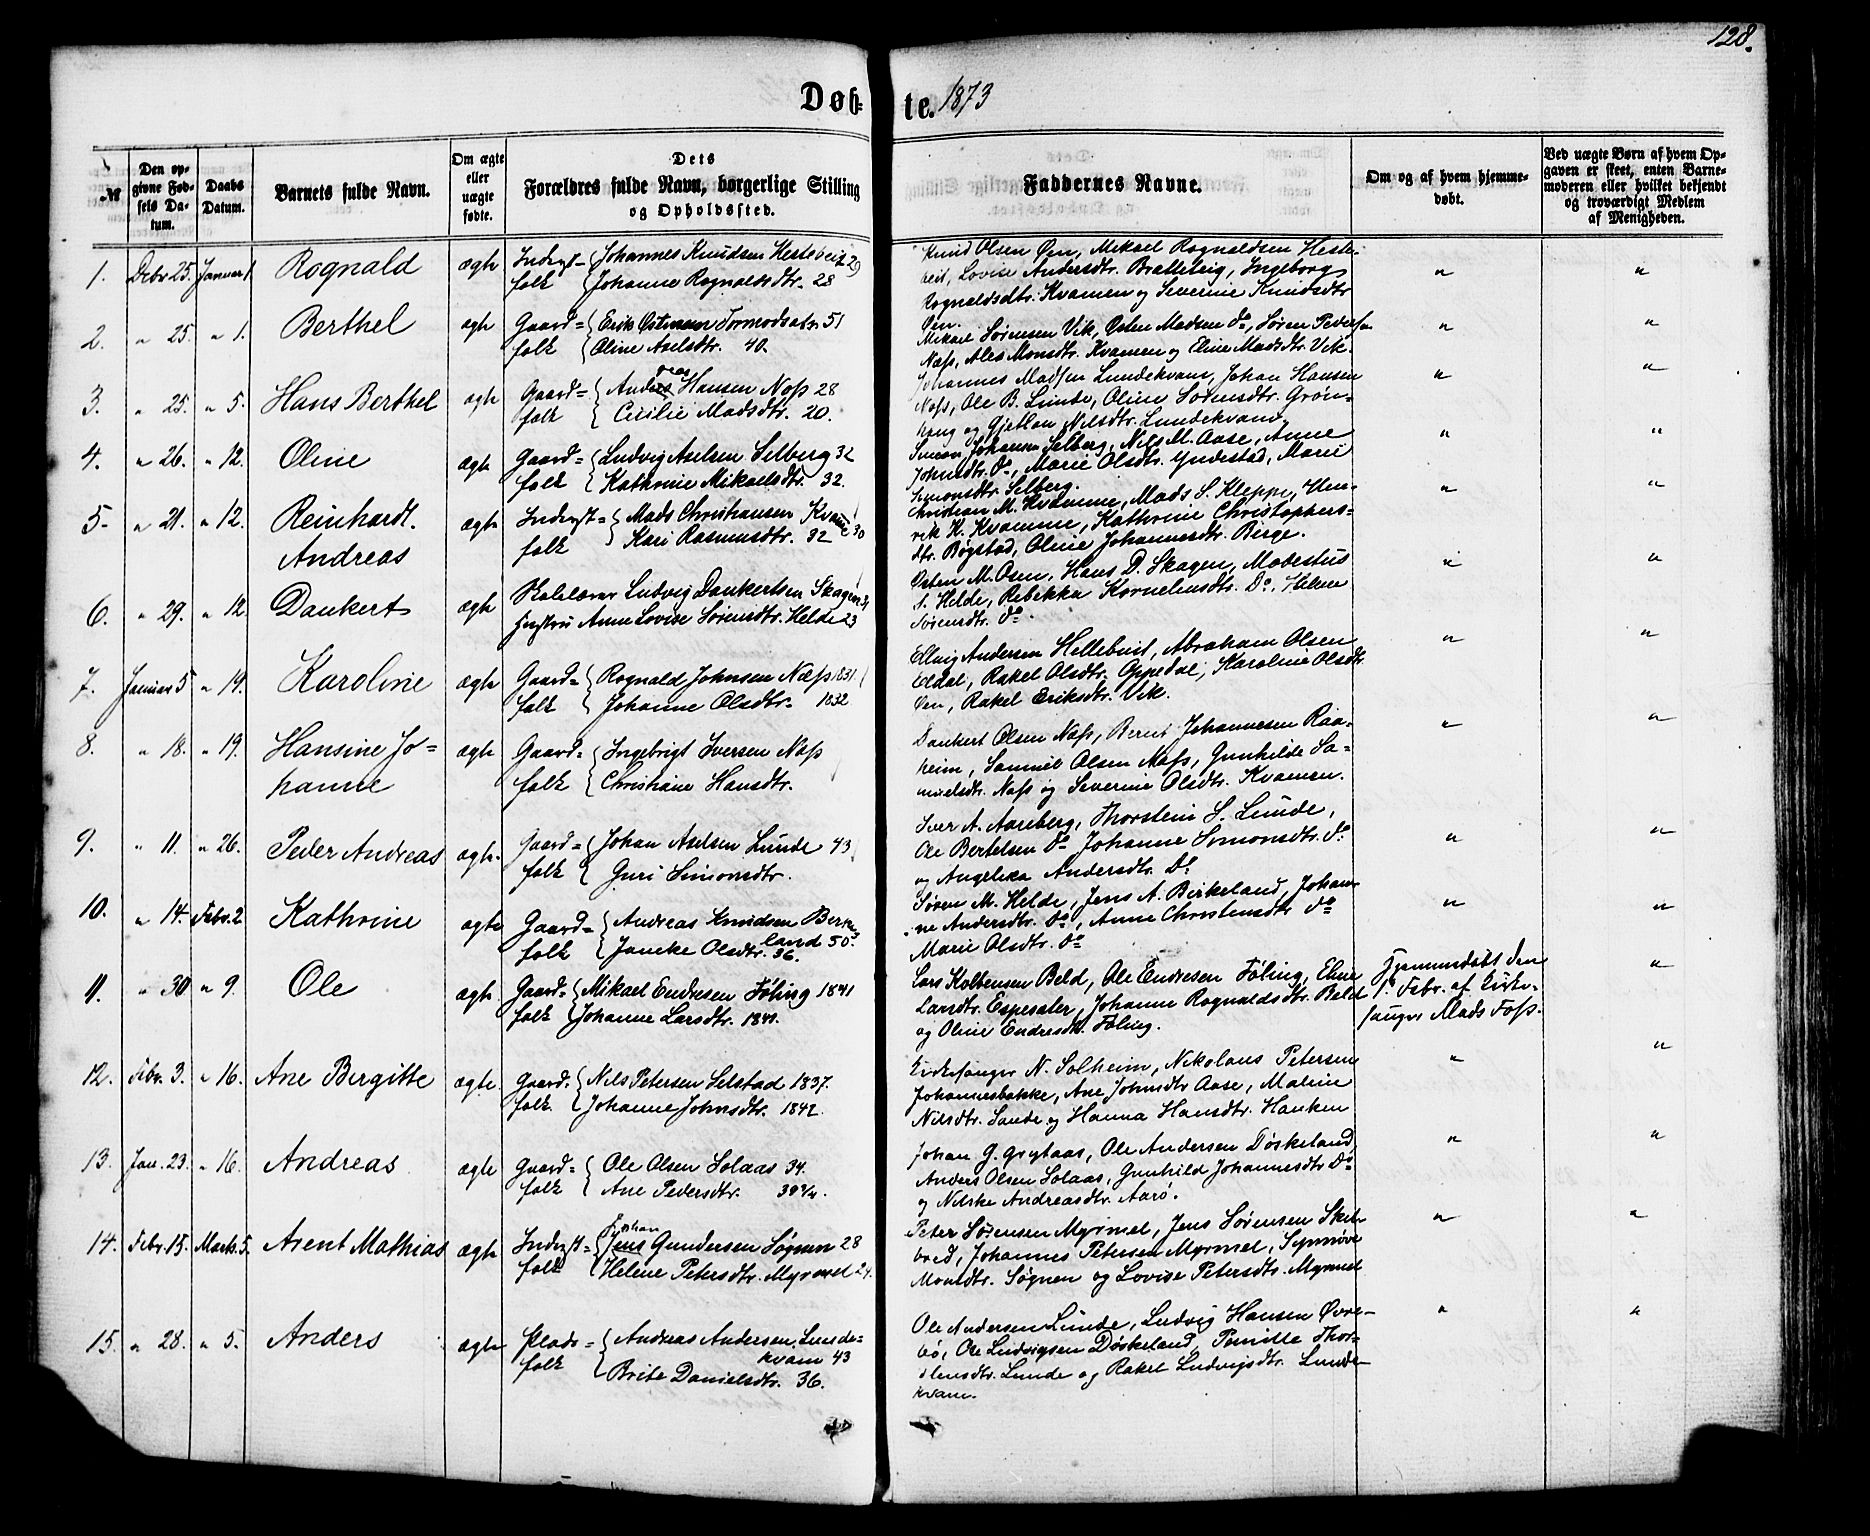 128.
Døb- te. 1873
№
Den op-
givne Fød-
sels Da-
tum.
Daabs
Datum.
Barnets fulde Navn.
Om ægte
eller
uægte
fødte.
Dets
Forældres fulde Navn, borgerlige Stilling
og Opholdssted.
Faddernes Navne.
Om og af hvem hjemme-
døbt.
Ved uægte Børn af hvem Op-
gaven er skeet, enten Barne-
moderen eller hvilket bekjendt
og troværdigt Medlem
af Menigheden.
1. Debr 25. Januar 1. Rognald ægte Inderst= folk { Johannes Knudsen Hestebeit 29
Johanne Rognaldsdtr. 28
Knud Olsen Øen, Mikael Rognaldsen Heste-
beit, Lovise Andersdtr. Bratteteig, Ingeborg
Rognaldsdtr. Kvamen og Severine Knudsdtr
Øen. " "
2. " 25. " 1. Berthel ægte Gaard= folk { Erik Østensen Tormodsæter 51
Oline Axelsdtr. 40.
Mikael Sørensen Vik, Østen Madsen do, Søren Peders
Næss, Ales Monsdtr. Kvamen og Eline Madsdtr. Vik. " "
3. " 25. " 5. Hans Berthel ægte Gaard= folk { Andreas Hansen Næss 28
Cecilie Madsdtr. 20.
Johannes Madsen Lundekvam, Johan Hansen
Næss, Ole B. Lunde, Oline Sørensdtr. Grøn-
haug og Gjertlou Nilsdtr. Lundekvam " "
4. " 26. " 12. Oline ægte Gaard= folk { Ludvig Axelsen Selberg 32
Kathrine Mikaelsdtr. 32.
Simon Johansen Selberg, Nils M. Aase, Anne
Johnsdtr. Do, Marie Olsdtr. Yndestad, Marie
Simonsdtr. Selberg. " "
5. " 21. " 12. Reinhardt
Andreas ægte Inderst= folk { Mads Christiansen Kvamme 30
Kari Rasmusdtr. 32
Christian M. Kvamme, Mads S. Kleppe, Hen-
rik H. Kvamme, Kathrine Christophers-
dtr. Bøgstad, Oline Johannesdtr. Birge. " "
6. " 29. " 12 Dankert ægte Skolelærer Ludvig Dankertsen Skagen
Hustru Anne Lovise Sørensdtr. Helde 23
Østen M. Osen, Hans D. Skagen, Modestus
S. Helde, Rebekka Korneliusdtr. Do, Helene
Sørensdtr. do " "
7. Januar 5 " 14. Karoline ægte Gaard= folk { Rognald Johnsen Næss 1831
Johanne Olsdtr. 1832
Ellvig Andersen Hellebust, Abraham Olsen
Eldal, Rakel Olsdtr. Oppedal, Karoline Olsdtr
Øen, Rakel Eriksdtr. Vik. " "
8. " 18. " 19. Hansine Jo=
hanne ægte Gaard= folk { Ingebrigt Iversen Næss
Christiane Hansdtr.
Dankert Olsen Næss, Bernt Johannesen Raa-
heim, Samuel Olsen Næss, Gunhilde Sa-
muelsdtr. Næss og Severine Olsdtr. Kvamen. " "
9. " 11. " 26. Peder Andreas ægte. Gaard= folk { Johan Axelsen Lunde 43
Guri Simonsdtr.
Iver A. Aareberg, Thorstein S. Lunde,
Ole Bertelsen do Johanne Simonsdtr. do
og Angelika Andersdtr. Do " "
10. " 14. Febr. 2 Kathrine ægte Gaard= folk { Andreas Knudsen Birke
land 50.
Jancke Olsdtr. 36.
Søren M. Helde, Jens A. Birkeland, Johan-
ne Andersdtr. do, Anne Christensdtr do
Marie Olsdtr. do " "
11. " 30 " 9. Ole ægte Gaard= folk { Mikael Endresen Føling 1841
Johanne Larsdtr. 1841.
Lars Kolbensen Beld, Ole Endresen Føling, Eline
Larsdtr. Espesæter, Johanne Rognaldsdtr. Beld
og Oline Endresdtr. Føling.
Hjemmedøbt den
1. Febr. af Kirke-
sanger Mads Foss. "
12. Febr. 3. " 16. Ane Bergitte ægte Gaard. folk { Nils Petersen Selstad 1837.
Johanne Johnsdtr. 1842.
Kirkesanger N. Solheim, Nikolaus Petersen
Johannesbakke, Ane Johnsdtr Aase, Malene
Nilsdtr. Sande og Hanna Hansdtr. Hauken " "
13. Jan. 23. " 16. Andreas ægte Gaard= folk { Ole Olsen Solaas 34.
Ane Pedersdtr. 39 3/4.
Johan G. Grytaas, Ole Andersen Døskeland
Anders Olsen Solaas, Gunhild Johannesdtr Do
og Nilske Andreasdtr. Aarø. " "
14. Febr. 15. Marts 5. Arent Mathias ægte Inderst= folk { Johan
Jens Gundersen Søgnen 28
Helene Petersdtr. Myrmel 24.
Peter Sørensen Myrmel, Jens Sørensen Skil-
bred, Johannes Petersen Myrmel, Synnøve
Monsdtr. Søgnen og Lovise Petersdtr. Myrmel " "
15. " 28. " 5. Anders ægte Plads= folk { Andreas Andersen Lunde=
kvam 43
Brite Danielsdtr. 36.
Ole Andersen Lunde, Ludvig Hansen Øvre-
bø, Ole Ludvigsen Døskeland, Pernille Thor-
Lunde og Rakel Ludvigsdtr. Lunde-
kvam. " "